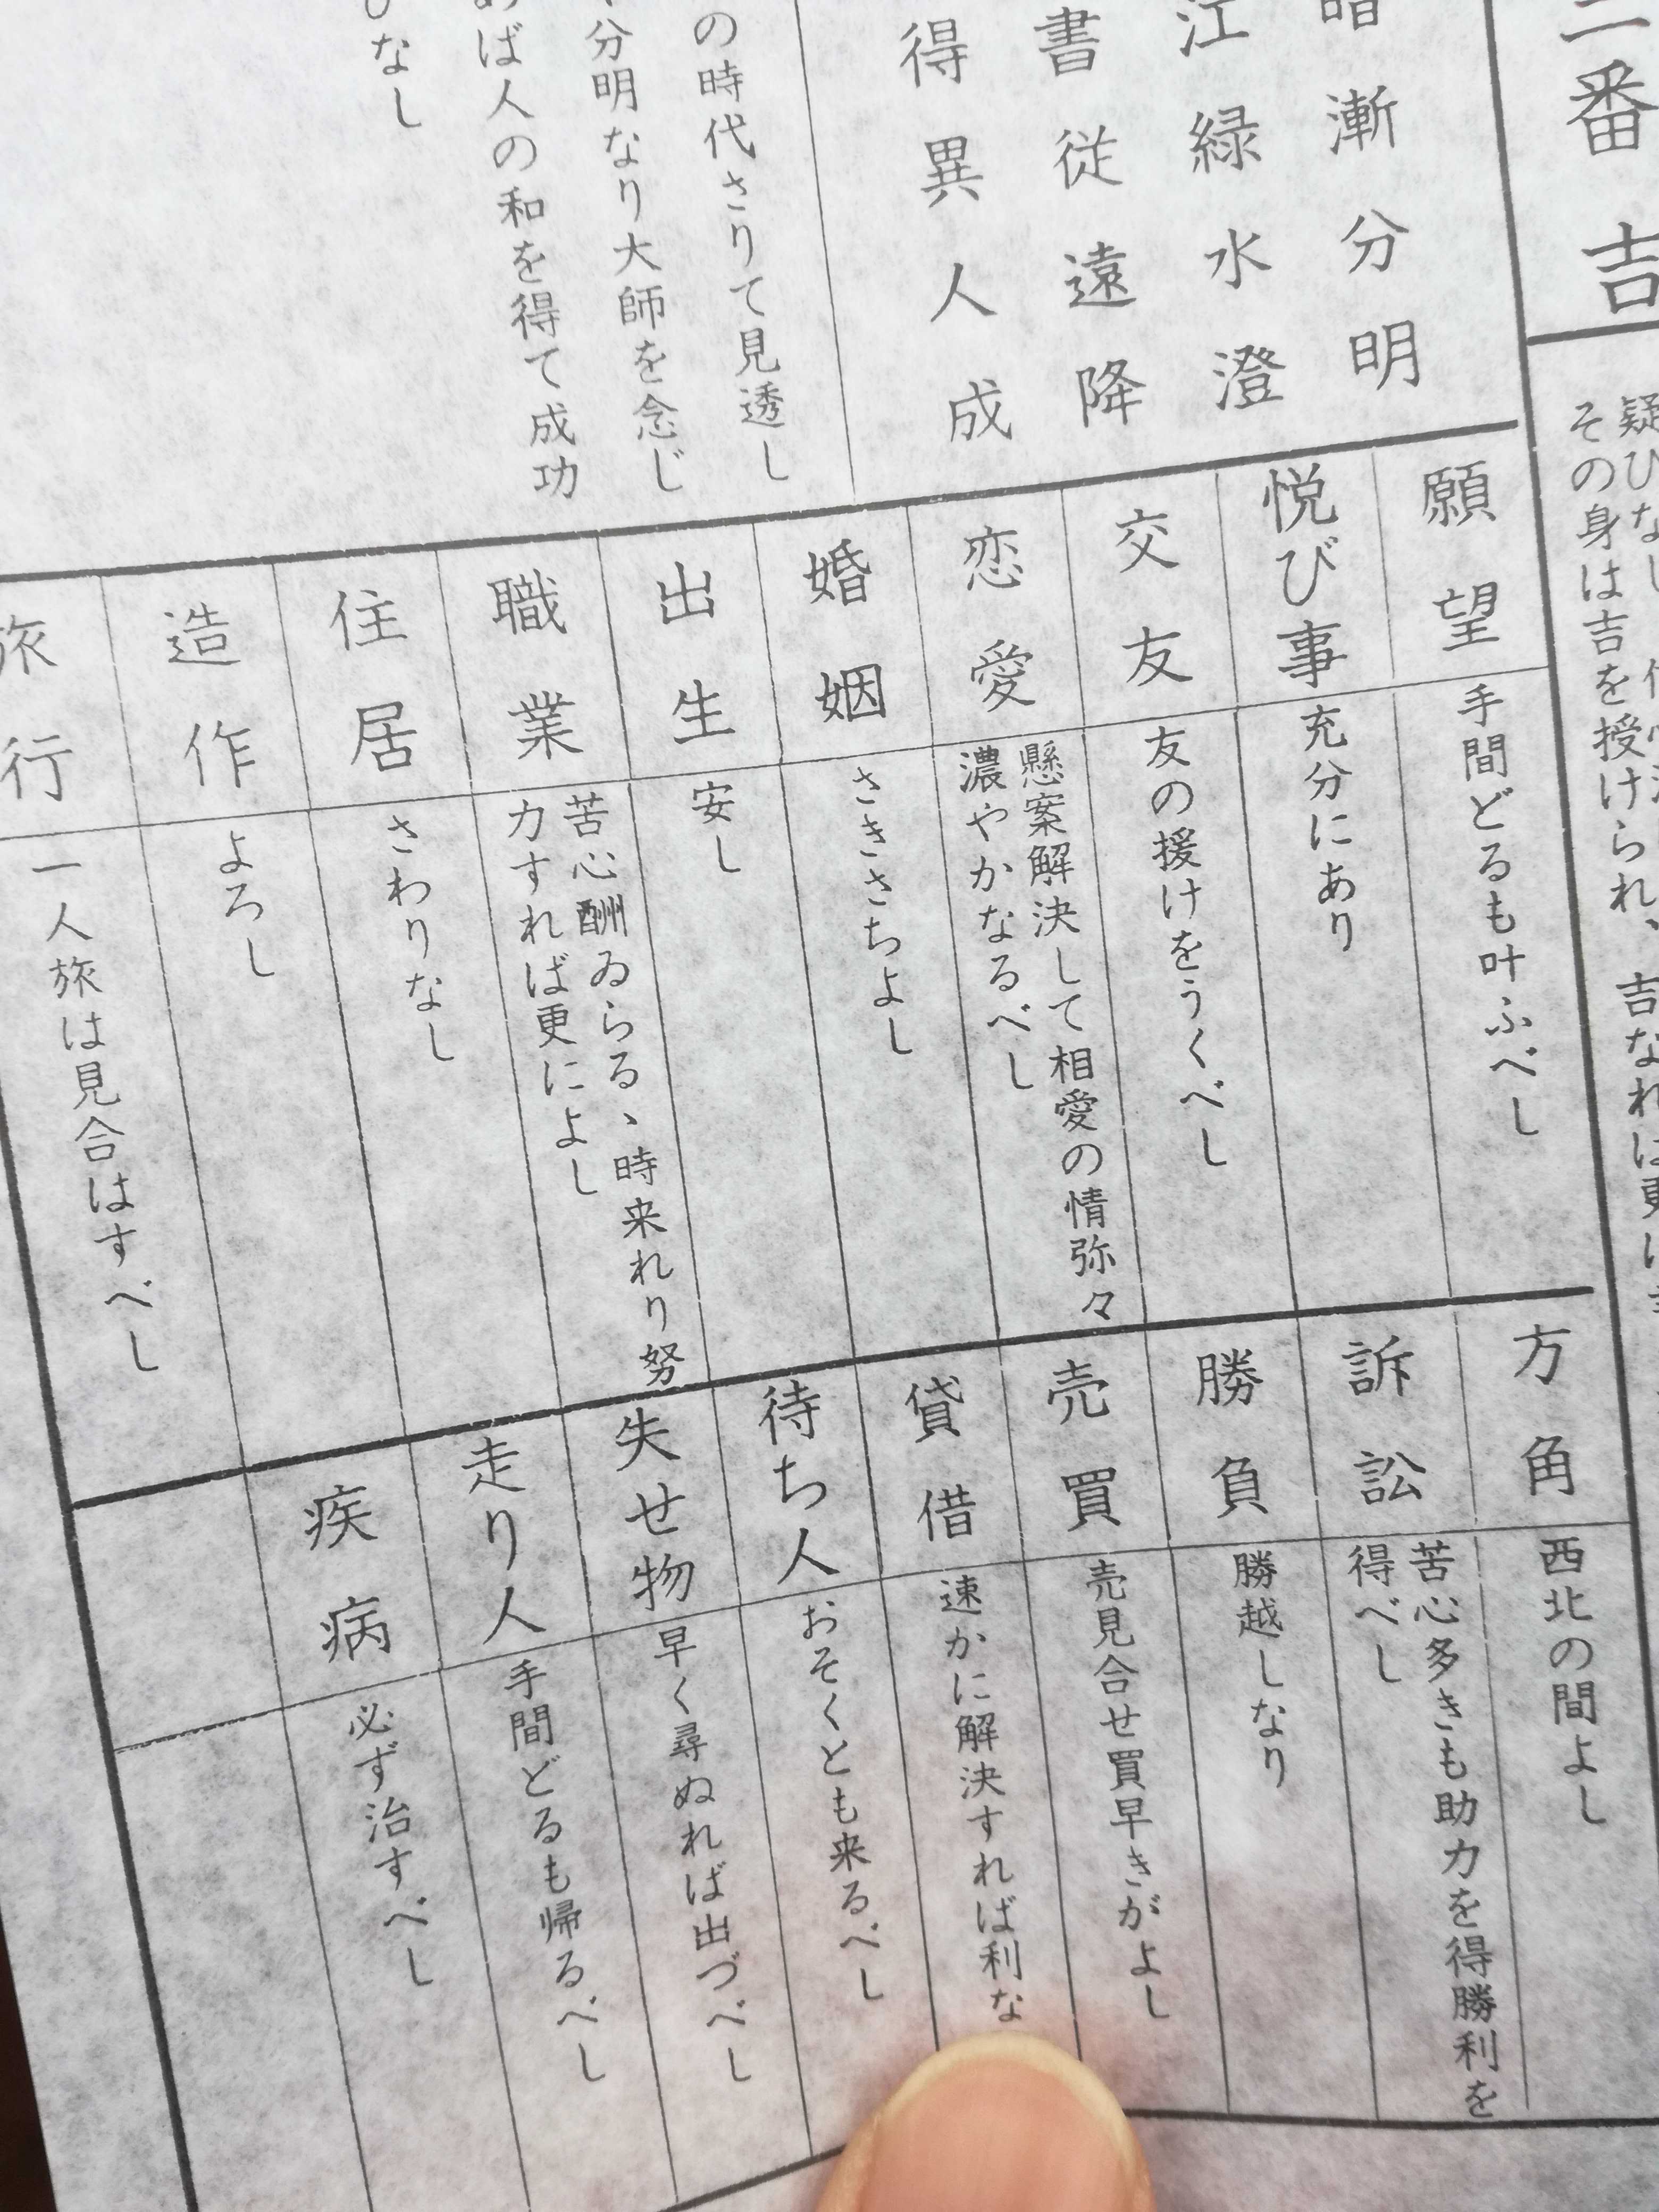 二番 吉
疑ひなし
その身は吉を授けられ、吉なれば更に
暗漸分明
江緑水澄
書従遠降
得異人成
の時代さりて見透し
分明なり大師を念じ
ば人の和を得て成功
ひなし
願望
手間どるも叶ふべし
悦び事
充分にあり
交友
友の援けをうくべし
恋愛
懸案解決して相愛の情弥々
濃やかなるべし
婚姻
さきさちよし
出生
安し
職業
苦心酬ゐらるゝ時来れり努
力すれば更によし
住居
さわりなし
造作
よろし
旅行
一人旅は見合はすべし
方角
西北の間よし
訴訟
苦心多きも助力を得勝利を
得べし
勝負
勝越しなり
売買
売見合せ買早きがよし
貸借
速かに解決すれば利な
待ち人
おそくとも来るべし
失せ物
早く尋ぬれば出づべし
走り人
手間どるも帰るべし
疾病
必ず治すべし